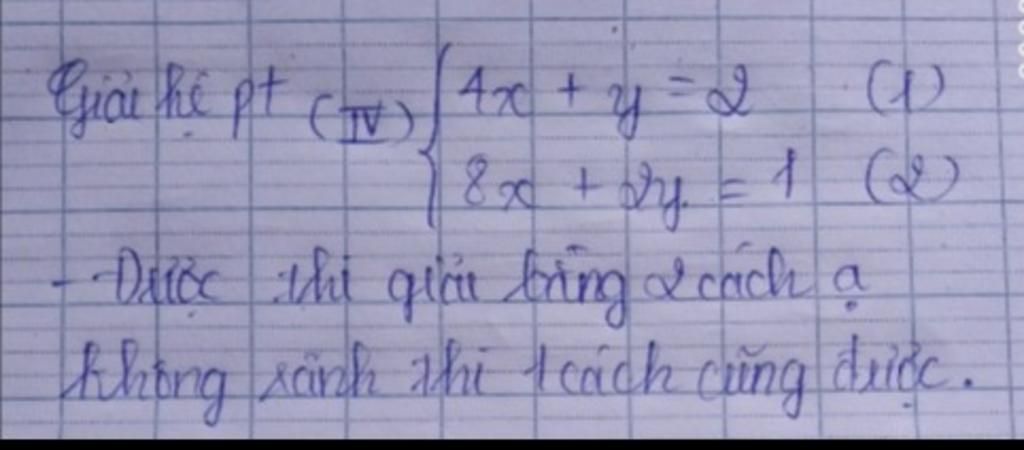 Giải hệ pt (IV) { 4x + y = 2 (1)
8x + 2y = 1 (2)
- Được thì giải bằng 2 cách ạ
không rảnh thì 1 cách cũng được.